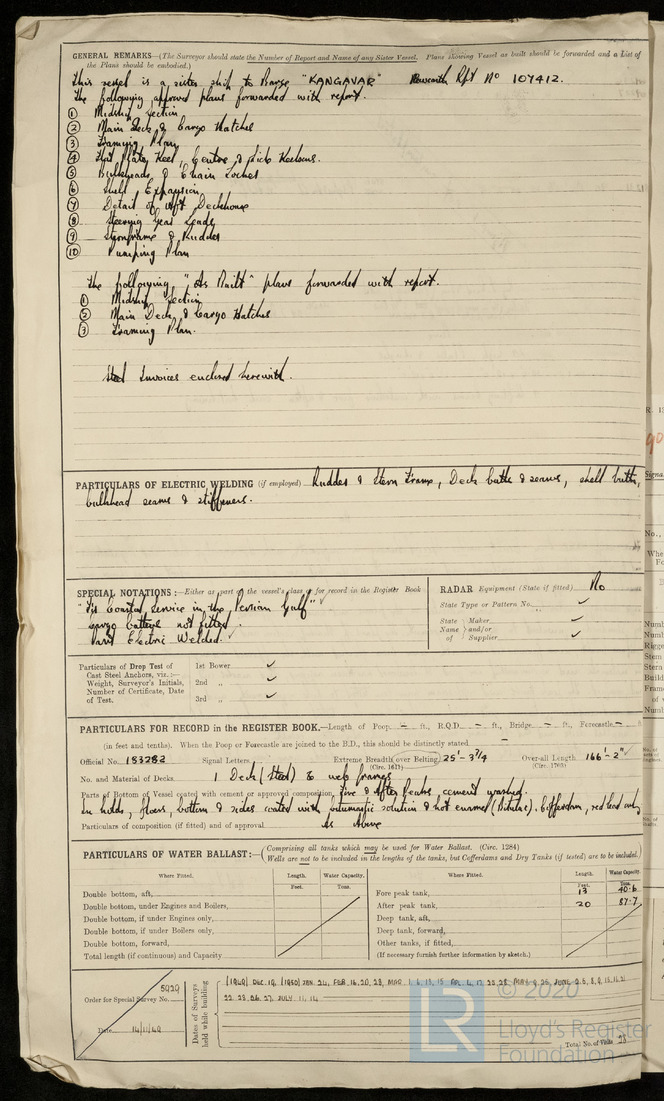 GENERAL REMARKS—(The Surveyor should state the Number of Report and Name of any Sister Vessel. Plans showing Vessel as built should be forwarded and a List of
the Plans should be embodied.)
This vessel is a sister ship to Barge "KANGAVAR" Rpt No 107412.
The following approved plans forwarded with report.
① Midship Section
② Main Deck & Cargo Hatches
③ Framing Plan
④ Flat Plate Keel, Centre & Side Keelsons.
⑤ Bulkheads & Chain Locker
⑥ Shell Expansion
⑦ Detail of Aft Deckhouse
⑧ Steering Gear Leads
⑨ Sternframe & Rudder
⑩ Pumping Plan
The following "As Built" plans forwarded with report.
① Midship Section
② Main Deck & Cargo Hatches
③ Framing Plan.
Steel Invoices enclosed herewith.
PARTICULARS OF ELECTRIC WELDING (if employed) Rudder & Stern Frame, Deck butts & seams, shell butts,
bulkhead seams & stiffeners.
SPECIAL NOTATIONS:—Either as part of the vessel's class or for record in the Register Book
"For Coastal Service in the Persian Gulf"
Cargo battens not fitted
Part Electric Welded
RADAR Equipment (State if fitted) No
State Type or Pattern No.
State Name of { Maker and/or Supplier
Particulars of Drop Test of
Cast Steel Anchors, viz.:—
Weight, Surveyor's Initials,
Number of Certificate, Date
of Test.
1st Bower
2nd „
3rd „
PARTICULARS FOR RECORD in the REGISTER BOOK.—Length of Poop – ft., R.Q.D. – ft., Bridge – ft., Forecastle –
(in feet and tenths). When the Poop or Forecastle are joined to the B.D., this should be distinctly stated –
Official No. 183282 Signal Letters Extreme Breadth over Belting 25'-3¾ Over-all Length 166'-2"
(Circ. 1611) (Circ. 1703)
No. and Material of Decks 1 Deck (Steel) & web frames
Parts of Bottom of Vessel coated with cement or approved composition Fore & After Peaks cement washed.
In holds, floors, bottom & sides coated with bitumastic solution & hot enamel. Cofferdam, red lead only
Particulars of composition (if fitted) and of approval As Above
PARTICULARS OF WATER BALLAST:—(Comprising all tanks which may be used for Water Ballast. (Circ. 1284)
Wells are not to be included in the lengths of the tanks, but Cofferdams and Dry Tanks (if tested) are to be included.
Where Fitted. Length. Water Capacity. Where Fitted. Length. Water Capacity.
Feet. Tons. Feet. Tons.
Double bottom, aft, Fore peak tank, 13 40·6
Double bottom, under Engines and Boilers, After peak tank, 20 87·7
Double bottom, if under Engines only, Deep tank, aft,
Double bottom, if under Boilers only, Deep tank, forward,
Double bottom, forward, Other tanks, if fitted,
Total length (if continuous) and Capacity (If necessary furnish further information by sketch.)
Order for Special Survey No. 5929
Date 14/11/49
Dates of Surveys
held while building
(1949) DEC. 19, (1950) JAN. 24, FEB. 16. 20, 28,
22. 23. 26. 27. JULY. 11. 14.
Total No. of Visits
LR
© 2020
Lloyd's Register
Foundation